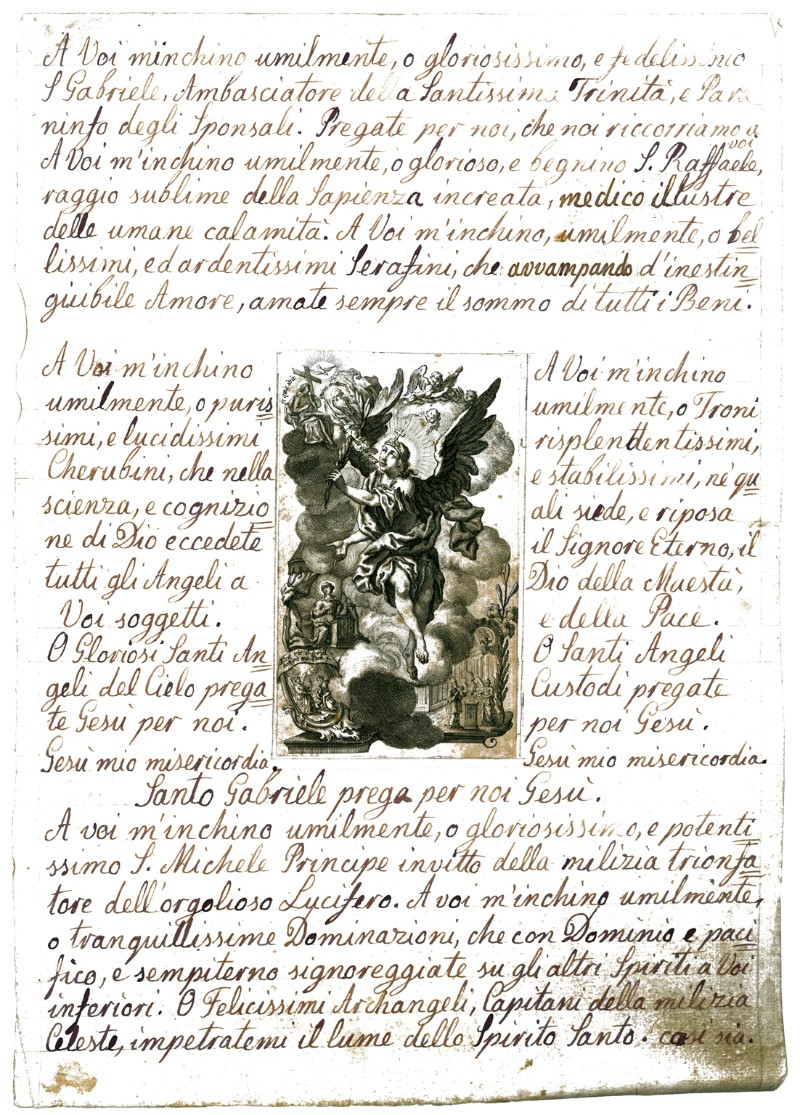 A Voi m'inchino umilmente, o gloriosissimo, e fedelissimo
S Gabriele, Ambasciatore della Santissima Trinità, e Para
ninfo degli Sponsali. Pregate per noi, che noi riccorriamo a
voi
A Voi m'inchino umilmente, o glorioso, e begnino S. Raffaele,
raggio sublime della Sapienza increata, medico illustre
delle umane calamità. A Voi m'inchino, umilmente, o bel
lissimi, ed ardentissimi Serafini, che avvampando d'inestin
guibile Amore, amate sempre il sommo di tutti i Beni.
A Voi m'inchino
umilmente, o puris
simi, e lucidissimi
Cherubini, che nella
scienza, e cognizio
ne di Dio eccedete
tutti gli Angeli a
Voi soggetti.
O Gloriosi Santi An
geli del Cielo prega
te Gesù per noi.
Gesù mio misericordia.
A Voi m'inchino
umilmente, o Troni
risplendentissimi,
e stabilissimi, né qu
ali siede, e riposa
il Signore Eterno, il
Dio della Maestà,
e della Pace.
O Santi Angeli
Custodi pregate
per noi Gesù.
Gesù mio misericordia.
Santo Gabriele prega per noi Gesù.
A voi m'inchino umilmente, o gloriosissimo, e potenti
ssimo S. Michele Principe invitto della milizia trionfa
tore dell'orgolioso Lucifero. A voi m'inchino umilmente,
o tranquillissime Dominazioni, che con Dominio e paci
fico, e sempiterno signoreggiate su gli altri Spiriti a Voi
inferiori. O Felicissimi Archangeli, Capitani della milizia
Celeste, impetratemi il lume dello Spirito Santo. così sia.